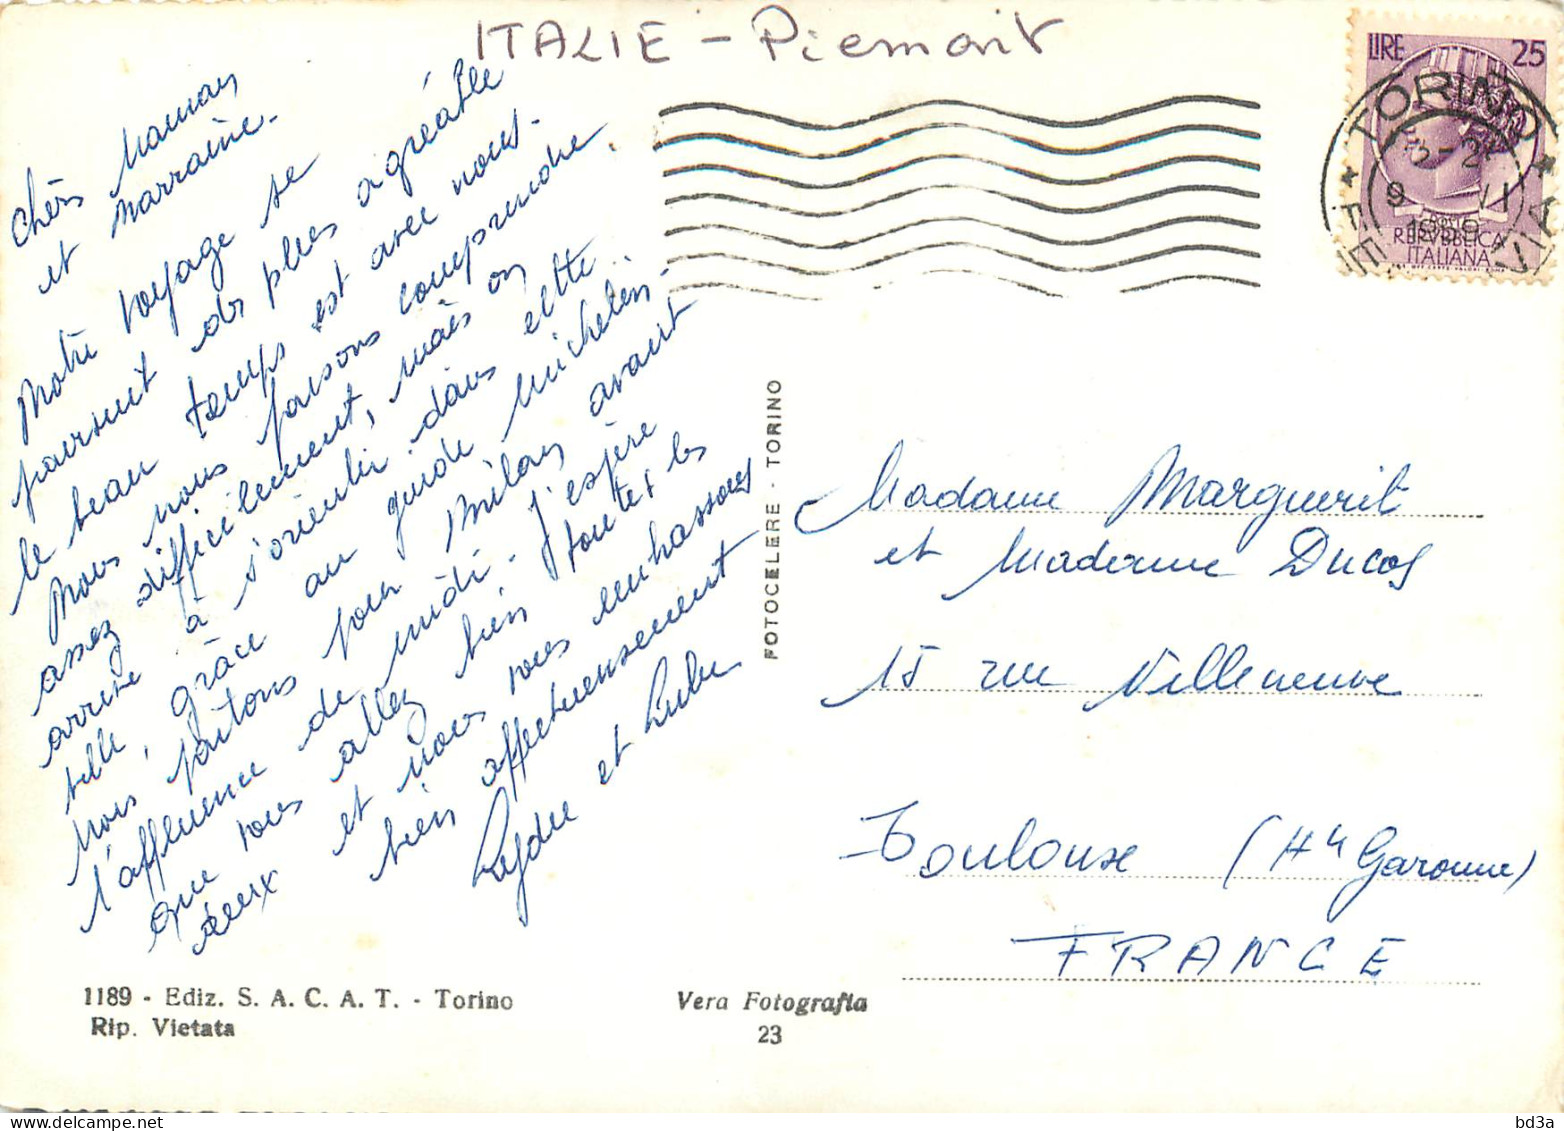 ITALIE - Piemont
LIRE 25
TORINO
9 VI
1959
FERROVIA
POSTE
REPVBBLICA
ITALIANA
Chère Maman
et Marraine.
Notre voyage se
poursuit des plus agréable
le beau temps est avec nous.
Nous nous faisons comprendre
assez difficilement, mais on
arrive à s'orienter dans cette
ville, grâce au guide michelin.
Nous partons pour Milan avant
l'affluence de midi. J'espère
que vous allez bien toutes les
deux et nous vous embrassons
bien affectueusement
et Lulu
FOTOCELERE - TORINO
Madame Marguerit
et Madame Ducos
15 rue Villeneuve
Toulouse (Hte Garonne)
FRANCE
1189 - Ediz. S. A. C. A. T. - Torino
Rip. Vietata
Vera Fotografia
23
bd3a